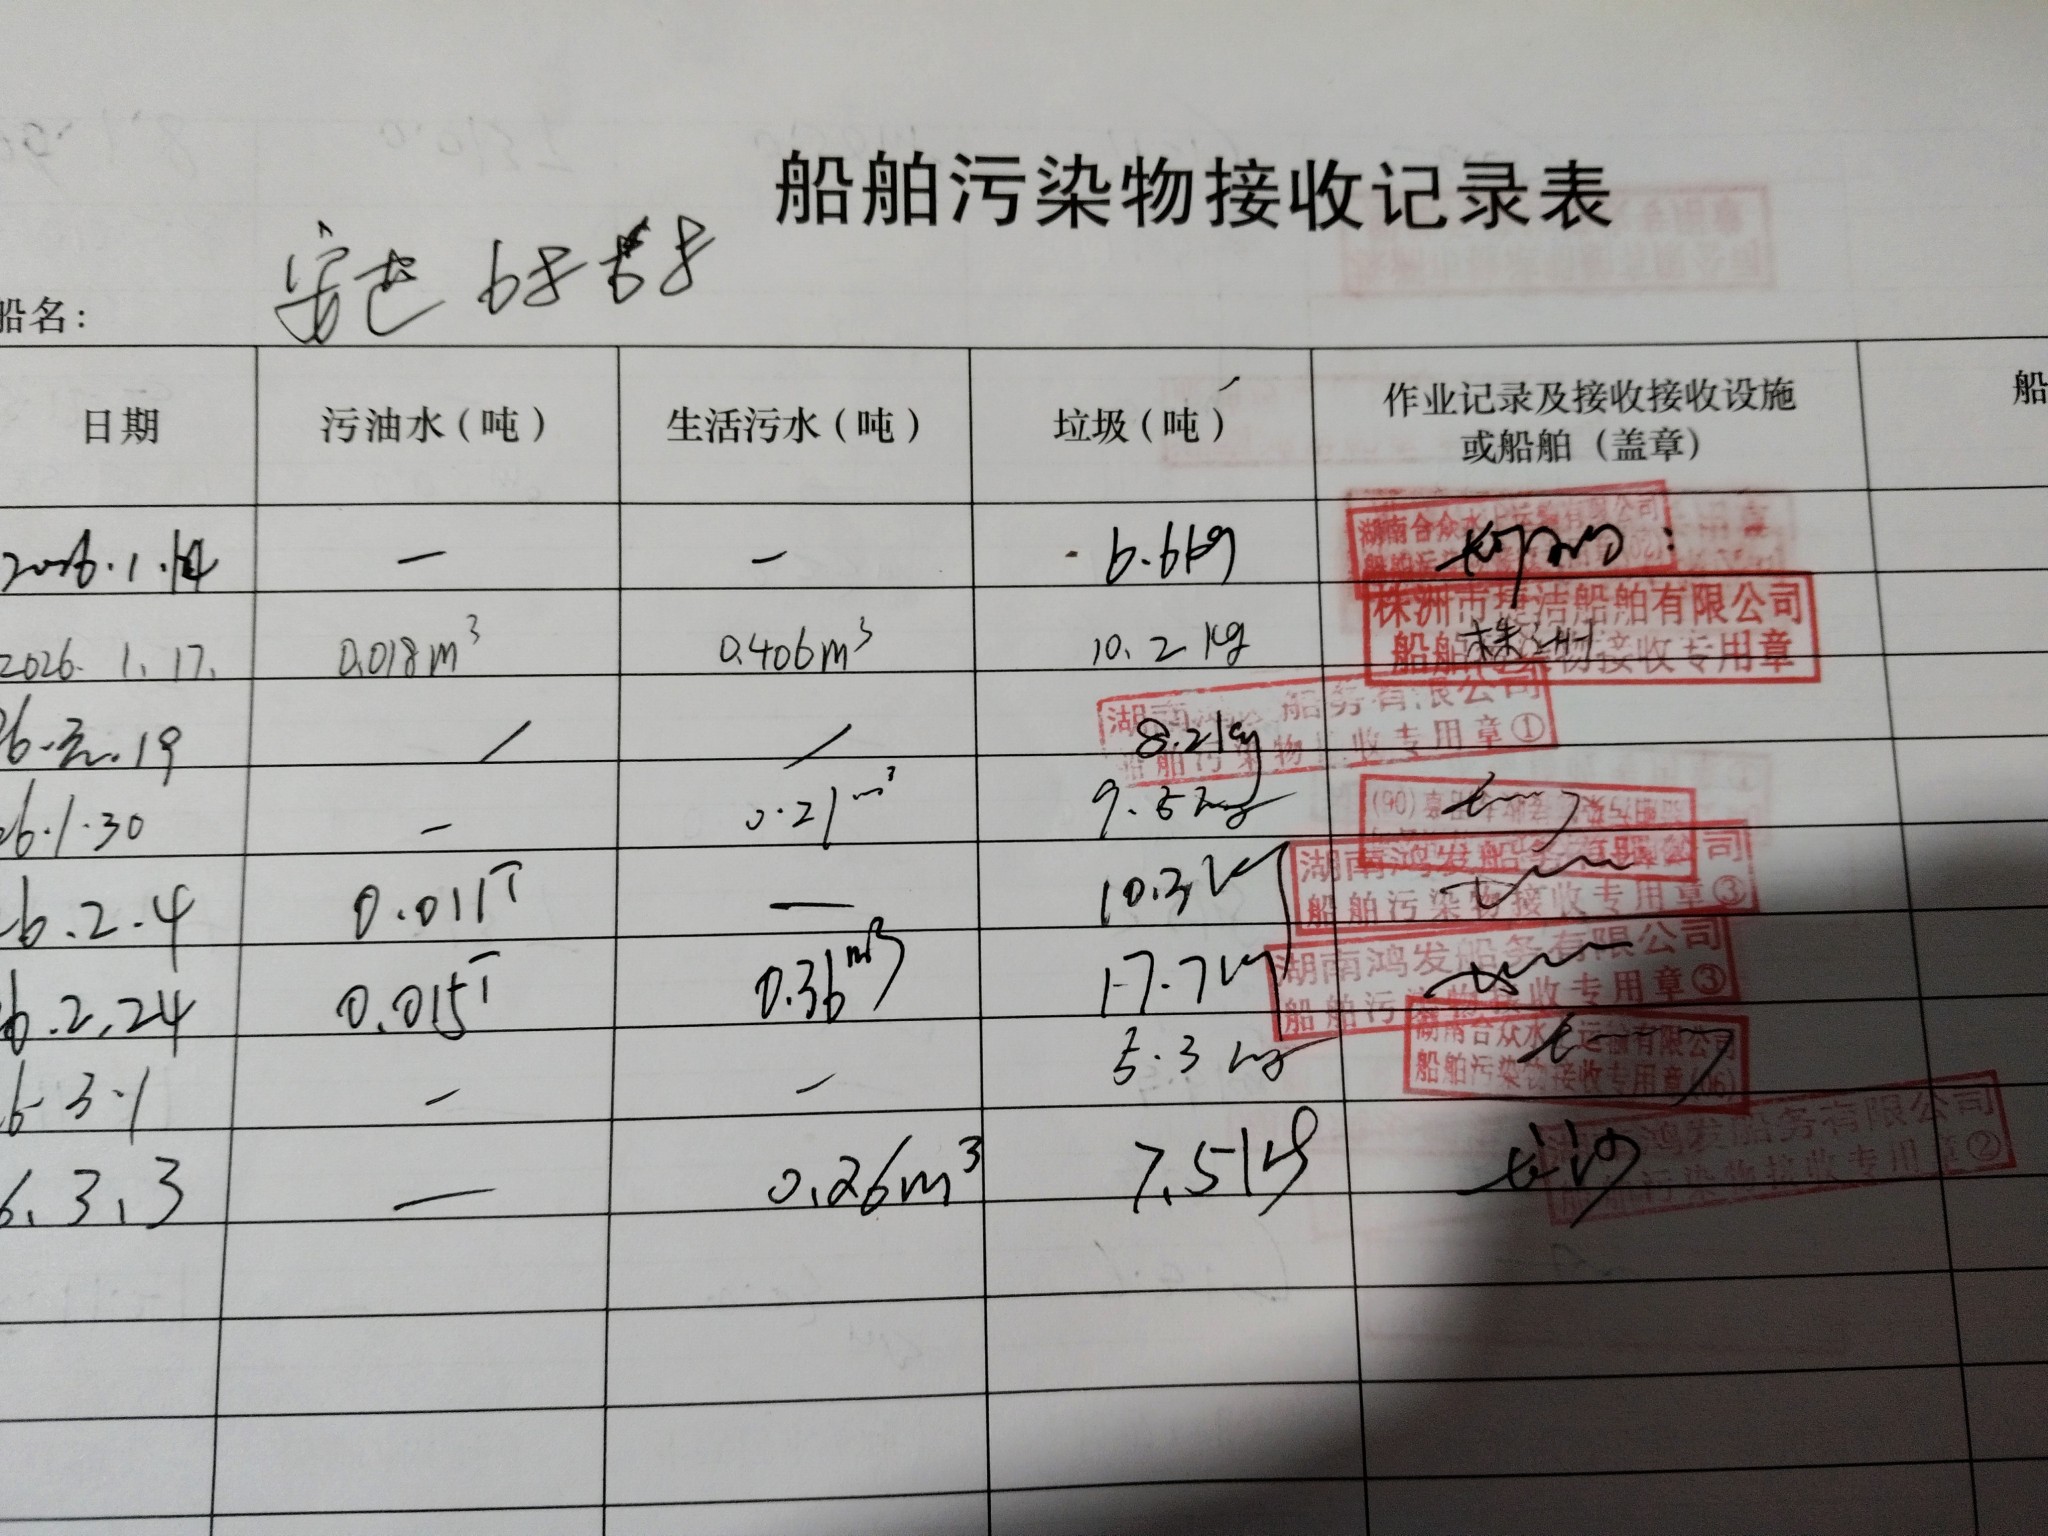 船舶污染物接收记录表
船名：
日期 污油水（吨） 生活污水（吨） 垃圾（吨） 作业记录及接收接收设施或船舶（盖章） 船
2026.1.14 — — 6.6kg 湖南合众水上运输有限公司
2026.1.17. 0.018m³ 0.406m³ 10.2kg 株洲 株洲市捷洁船舶有限公司 船舶污染物接收专用章
19 / / 8.2kg 湖南鸿发船务有限公司 船舶污染物接收专用章①
26.1.30 — 0.21m³ 9.5kg
26.2.4 0.011T — 10.3kg 湖南鸿发船务有限公司 船舶污染物接收专用章③
26.2.24 0.015T 0.36m³ 17.7kg 湖南鸿发船务有限公司 船舶污染物接收专用章③
6.3.1 — — 5.3kg 湖南合众水上运输有限公司 船舶污染物接收专用章(06)
6.3.3 — 0.26m³ 7.5kg 长沙 湖南鸿发船务有限公司 船舶污染物接收专用章②